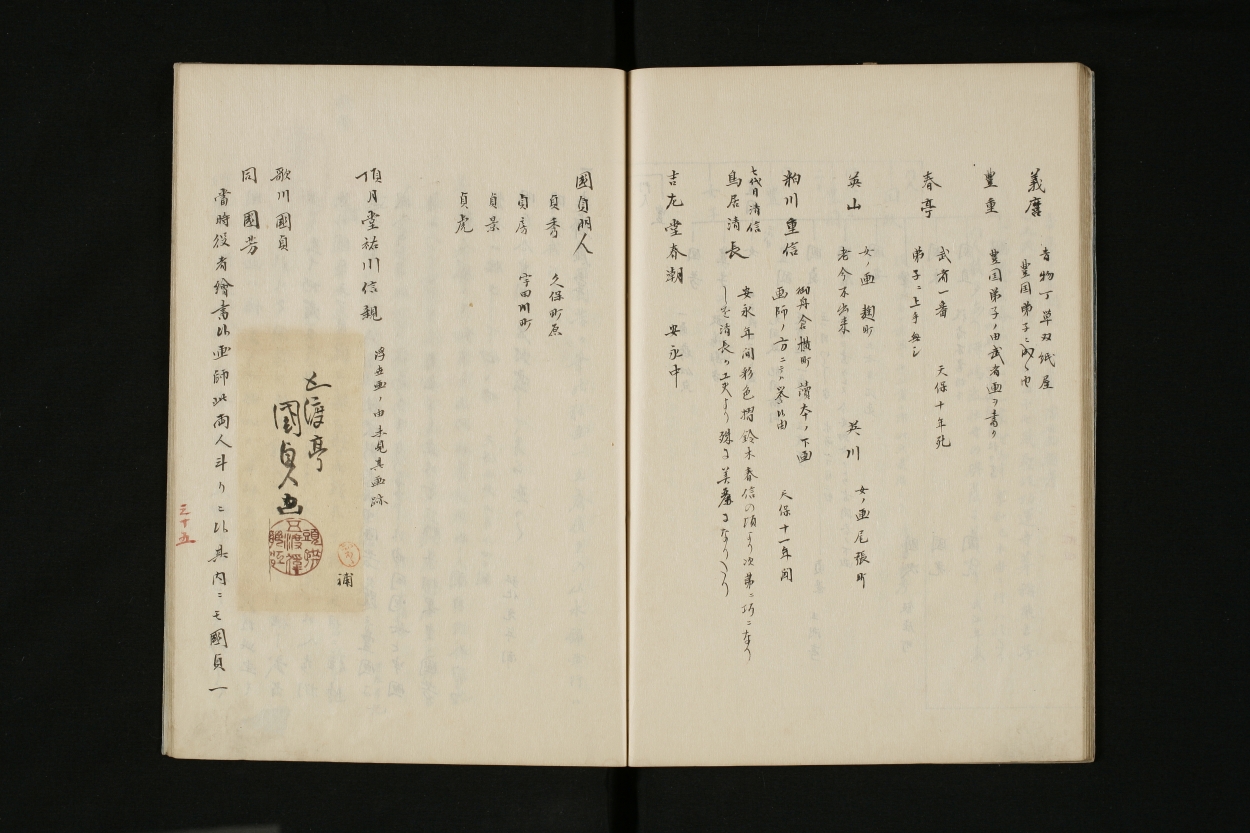 義麿
青物丁草双紙屋
豊国弟子ニ成ル由
豊重
豊国弟子ノ由武者画ヲ書リ
春亭
武者一番 天保十年死
弟子ニ上手無シ
英山
女ノ画 麹町
老今不出来
英川
女ノ画尾張町
柏川重信
御舟倉横町 讀本ノ下画
画師ノ方ニテハ 由
天保十一年閏
七代目清信
鳥居清長
安永年間彩色摺鈴木春信の頃より次第ニ巧ニなり
しを清長か工夫より殊に美麗になりたり
吉左堂春潮 安永中
國貞門人
貞秀 久保町原
貞房 宇田川町
貞景
貞虎
頂月堂祐川信親
浮世画ノ由未見其画跡
五渡亭
國貞画
補
歌川國貞
同 國芳
當時役者繪書候画師此両人斗リニ候其内ニモ國貞一
三十五